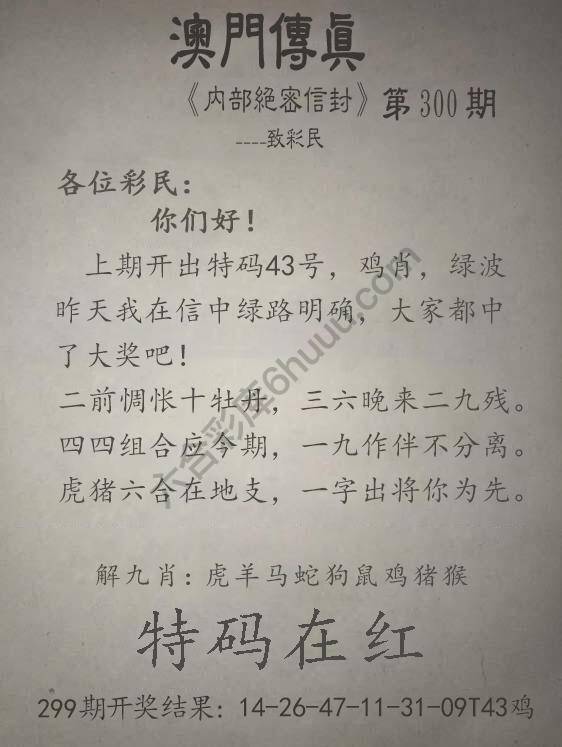 澳門傳眞
《内部絕密信封》第300期
----致彩民
各位彩民：
你们好！
上期开出特码43号，鸡肖，绿波
昨天我在信中绿路明确，大家都中
了大奖吧！
二前惆怅十牡丹，三六晚来二九残。
四四组合应今期，一九作伴不分离。
虎猪六合在地支，一字出将你为先。
解九肖：虎羊马蛇狗鼠鸡猪猴
特码在红
299期开奖结果：14-26-47-11-31-09T43鸡
六合彩库6huuu.com